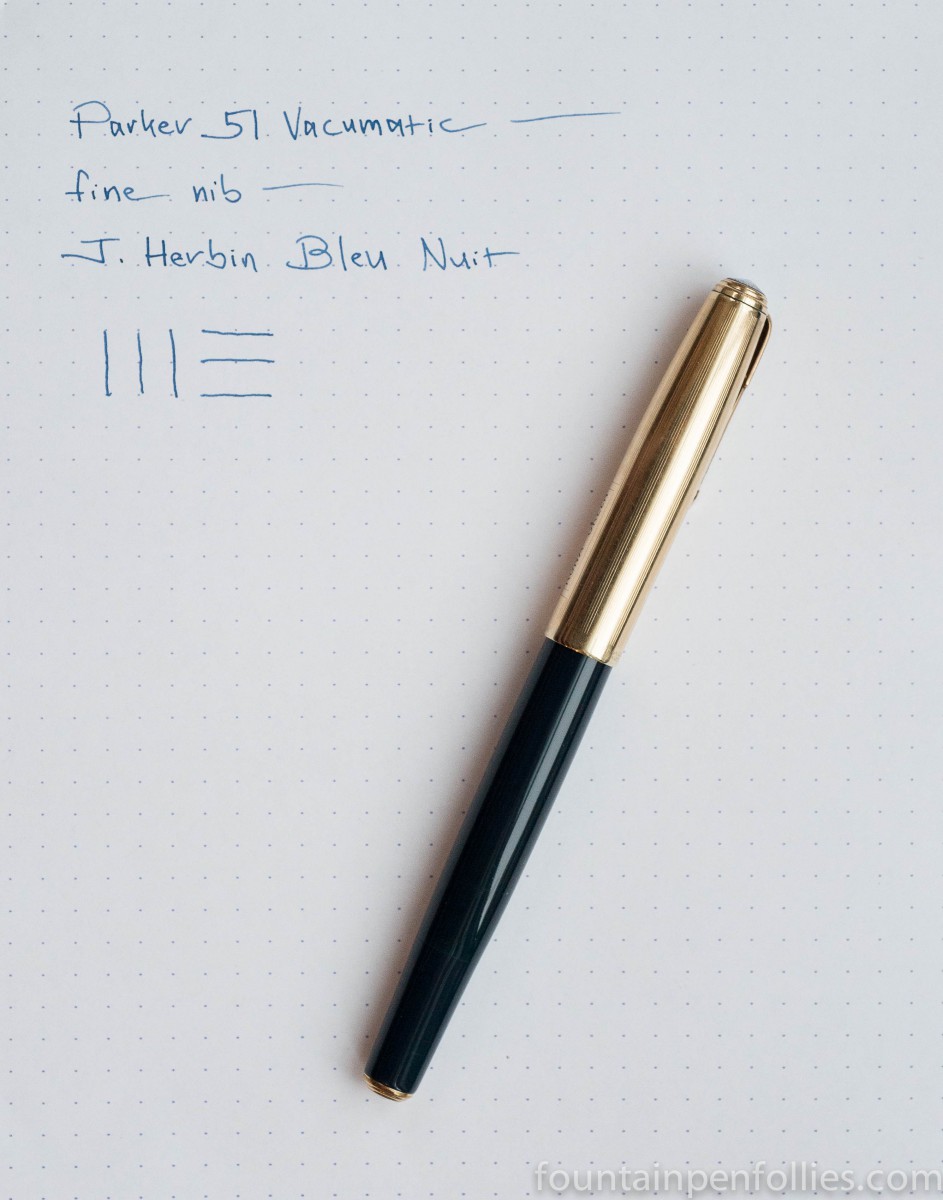 Parker 51 Vacumatic
fine nib
J. Herbin Bleu Nuit
fountainpenfollies.com